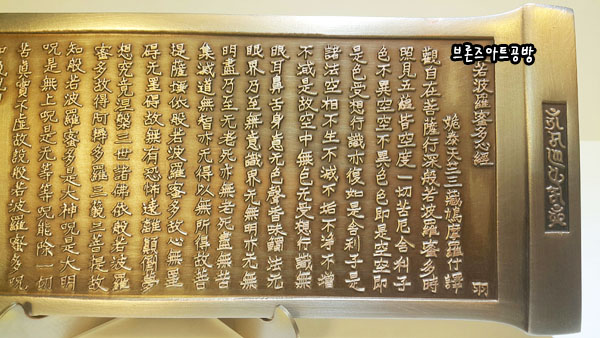 브론즈아트공방
若波羅蜜多心經
姚秦天竺三藏鳩摩羅什譯
觀自在菩薩行深般若波羅蜜多時
照見五蘊皆空度一切苦厄舍利子
色不異空空不異色色即是空空即
是色受想行識亦復如是舍利子是
諸法空相不生不滅不垢不淨不增
不減是故空中無色无受想行識無
眼耳鼻舌身意无色聲香味觸法无
眼界乃至無意識界无無明亦无無
明盡乃至无老死亦無老死盡無苦
集滅道無智亦无得以無所得故菩
提薩埵依般若波羅蜜多故心無罣
碍无罣碍故無有恐怖遠離顚倒夢
想究竟涅槃三世諸佛依般若波羅
蜜多故得阿耨多羅三藐三菩提故
知般若波羅蜜多是大神呪是大明
呪是無上呪是无等等呪能除一切
苦眞實不虛故說般若波羅蜜多呪
羽